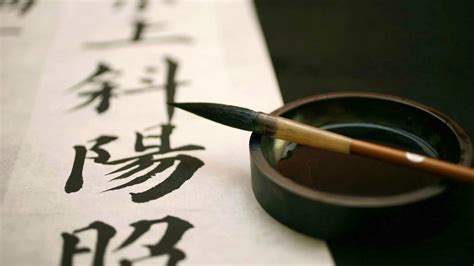 斜陽照